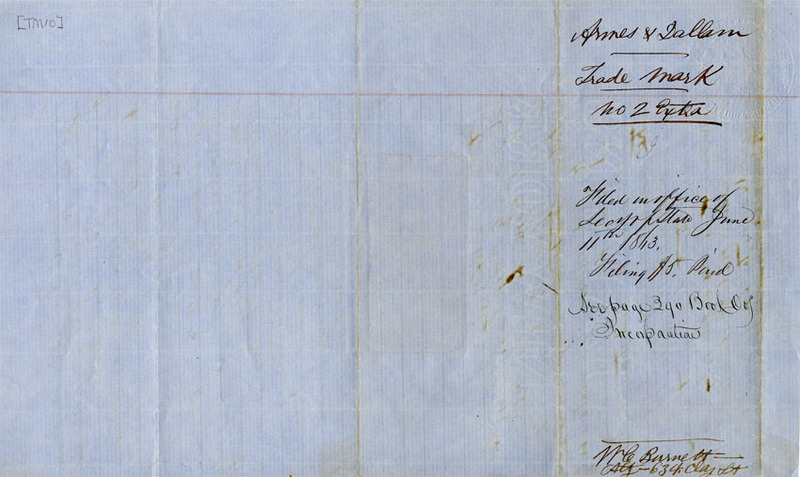 [TM10]
Armes & Dallam
Trade Mark
No 2 Extra
Filed in office of
Secy of State June
11th 1863.
Filing $5. Paid
See page 290 Book C of
Incorporation
W C Burnett
Atty - 634 Clay St